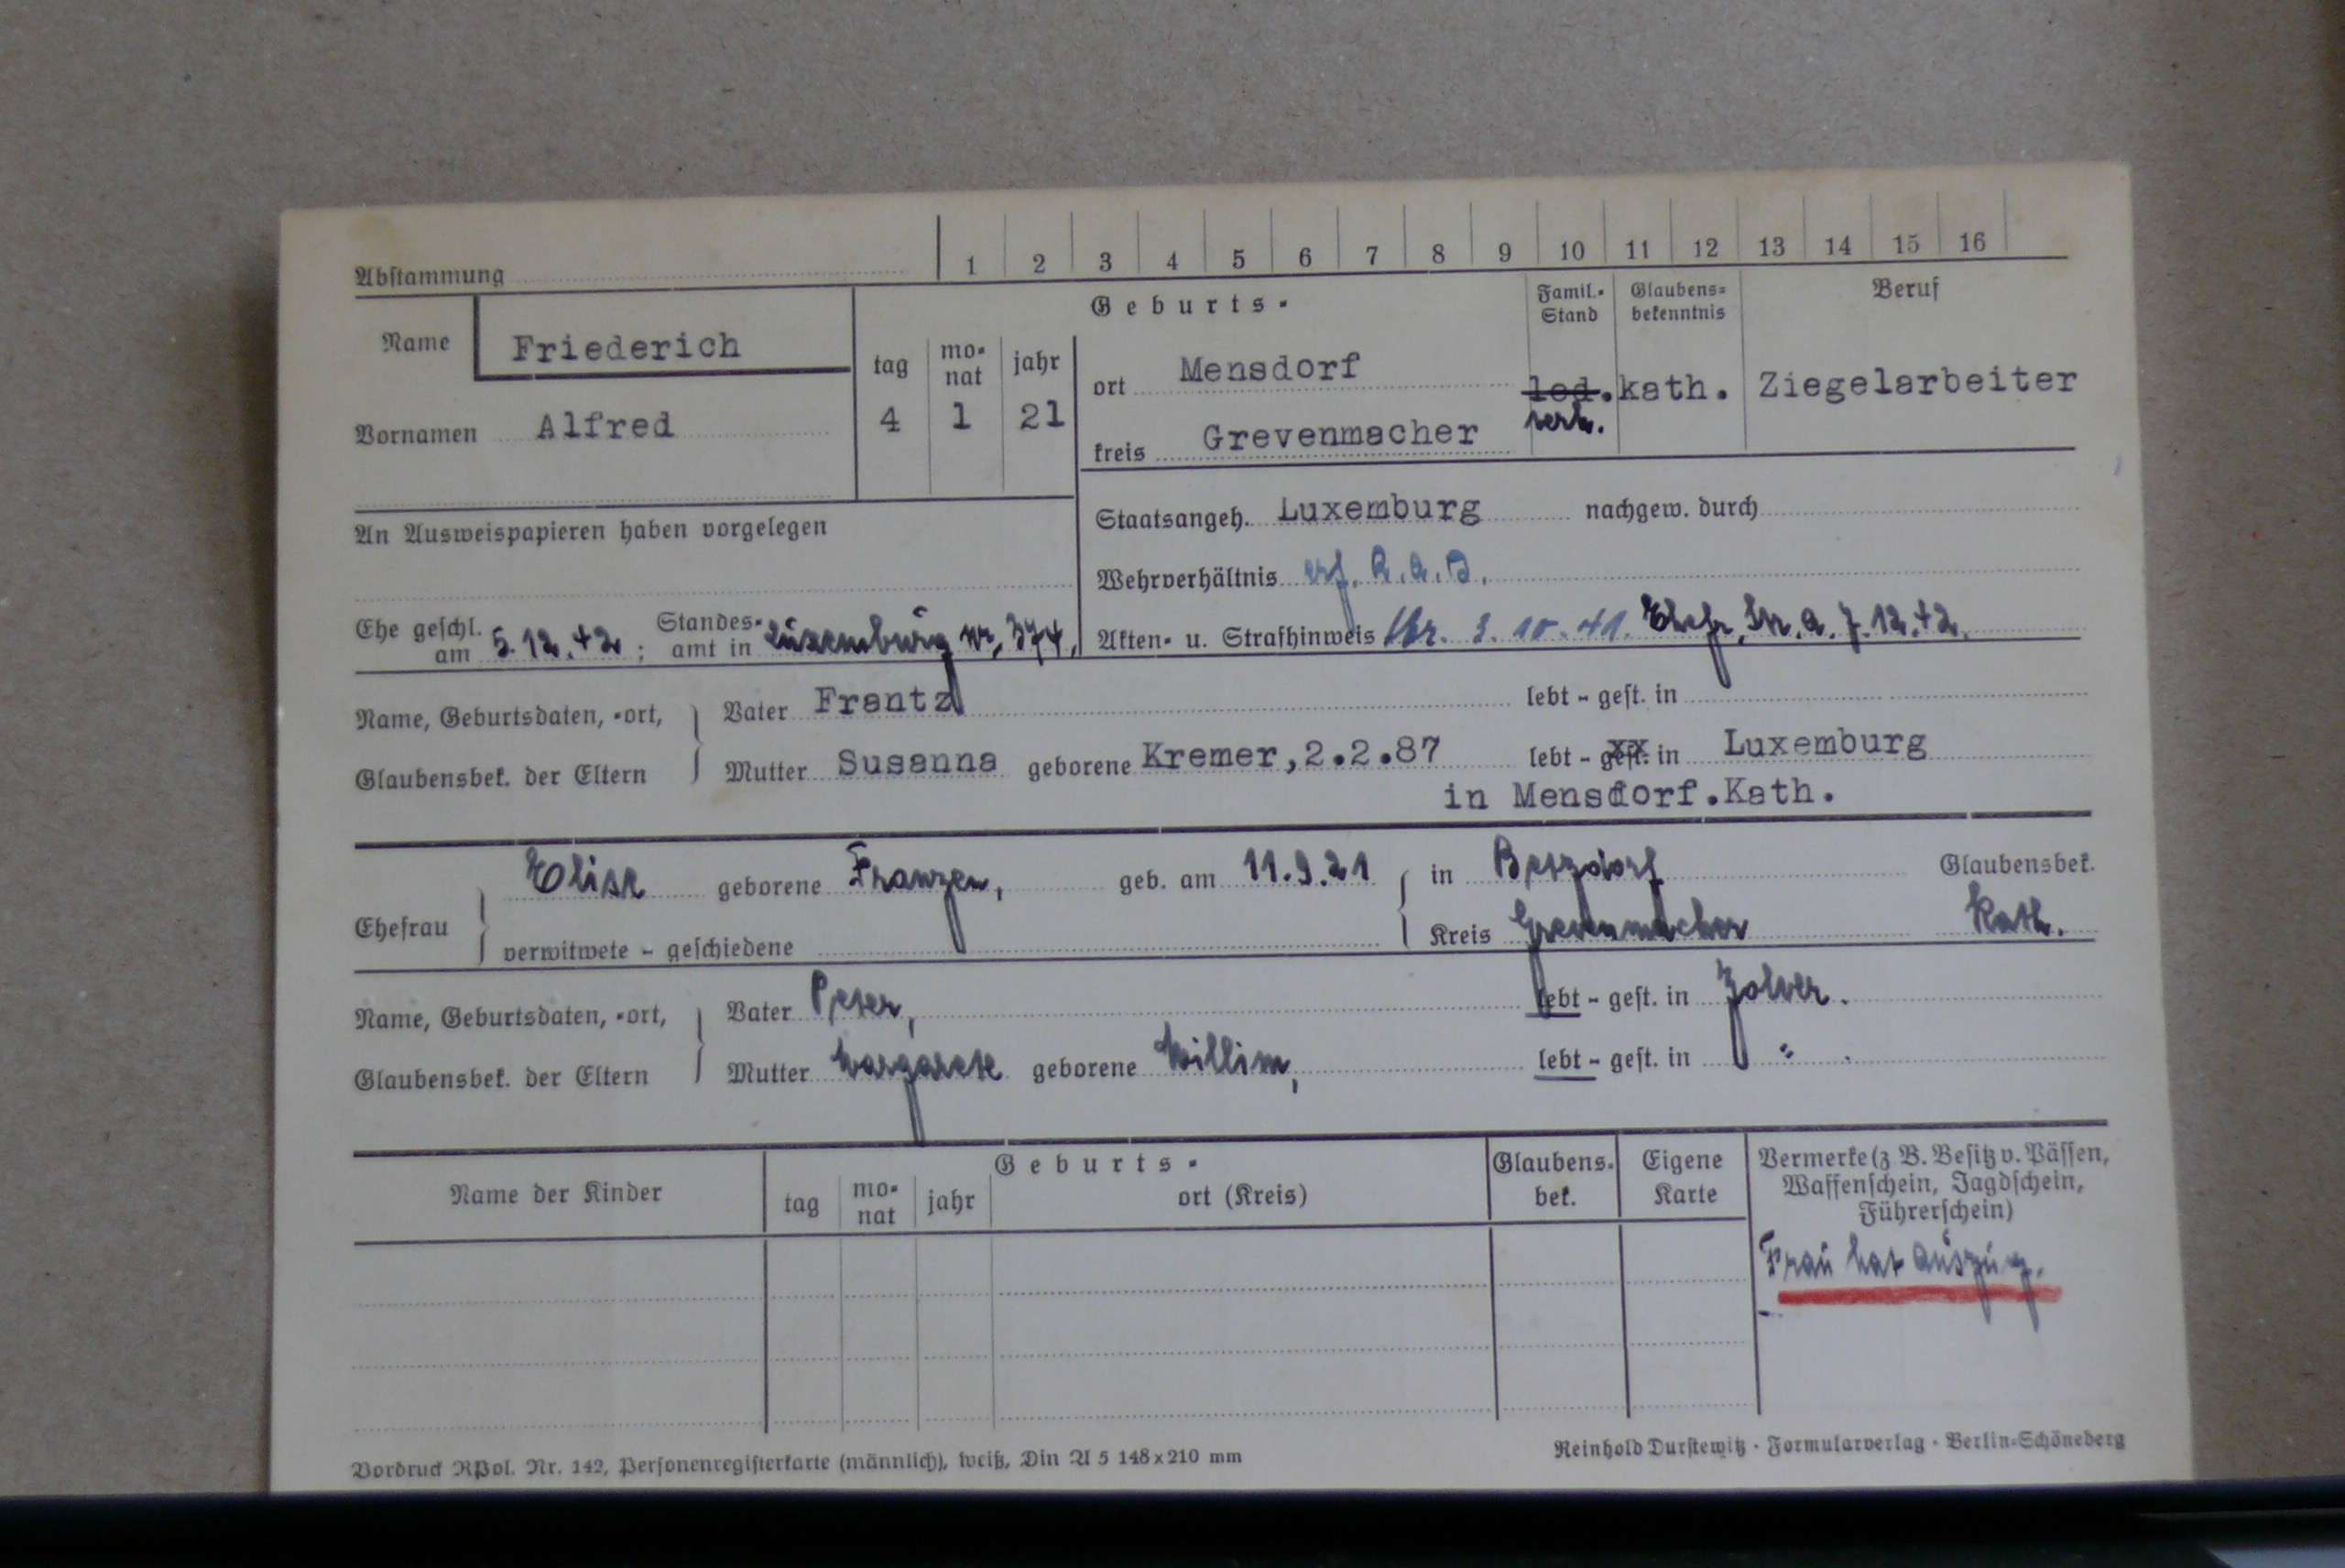 Abstammung 1 2 3 4 5 6 7 8 9 10 11 12 13 14 15 16
Geburts- Famil.- Stand Glaubens- bekenntnis Beruf
Name Friederich
tag mo- nat jahr ort Mensdorf
led. kath. Ziegelarbeiter
Vornamen Alfred 4 1 21
kreis Grevenmacher verh.
An Ausweispapieren haben vorgelegen
Staatsangeh. Luxemburg nachgew. durch
Wehrverhältnis erf. R.A.D.
Ehe geschl. am 5.12.42; Standes- amt in Luxemburg Nr. 374.
Akten- u. Strafhinweis 3.10.41. Ehefr. 7.12.42.
Name, Geburtsdaten, -ort, Vater Frantz lebt - gest. in
Glaubensbek. der Eltern Mutter Susanna geborene Kremer, 2.2.87 lebt - gest. in Luxemburg
in Mensdorf. Kath.
Elise geborene Franzen, geb. am 11.9.21 in Betzdorf Glaubensbek.
Ehefrau verwitwete - geschiedene Kreis Grevenmacher Kath.
Name, Geburtsdaten, -ort, Vater Peter, lebt - gest. in Zolver.
Glaubensbek. der Eltern Mutter Margarete geborene Willim, lebt - gest. in " .
Name der Kinder Geburts- tag mo- nat jahr ort (Kreis) Glaubens- bek. Eigene Karte
Vermerke (z. B. Besitz v. Pässen,
Waffenschein, Jagdschein,
Führerschein)
Frau hat Auszug.
Vordruck RPol. Nr. 142, Personenregisterkarte (männlich), weiß, Din A 5 148 x 210 mm
Reinhold Durstewitz · Formularverlag · Berlin-Schöneberg